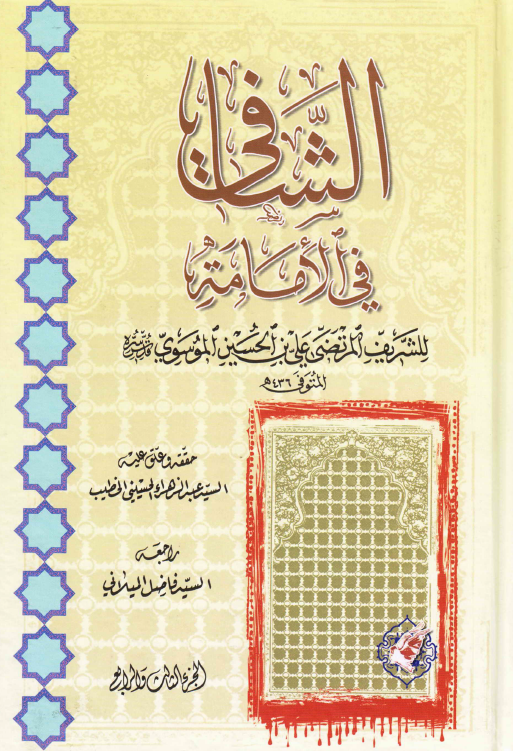 الشَّافي
في الإمَامَةِ
للشَّريفِ المُرتَضَى عَلِيّ بنِ الحُسَين المُوسَويّ قُدِّسَ سِرُّه
المتوفى ٤٣٦ هـ
حققه وعلق عليه
السيد عبد الزهراء الحسيني الخطيب
راجعه
السيد فاضل الميلاني
الجزء الثالث والرابع